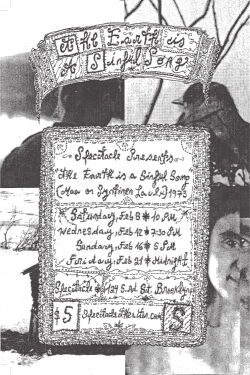 The Earth is
A Sinful Song
Spectacle Presents
"The Earth is a Sinful Song
(Maa on Syntinen Laulu) 1973
Saturday, Feb 8 * 10 PM
Wednesday, Feb 12 * 7:30 PM
Sunday, Feb 16 * 5 PM
Friday, Feb 21 * Midnight
Spectacle * 124 S. 3rd St. Brooklyn
$5 Spectacletheater.com S